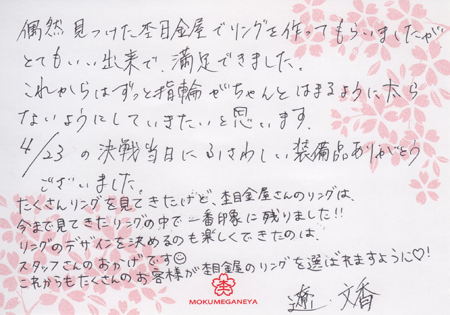 偶然見つけた杢目金屋でリングを作ってもらいましたが
とてもいい出来で、満足できました。
これからはずっと指輪がちゃんとはまるように太ら
ないようにしていきたいと思います。
4/23 の決戦当日にふさわしい装備品ありがとう
ございました。
たくさんリングを見てきたけど、杢目金屋さんのリングは、
今まで見てきたリングの中で一番印象に残りました!!
リングのデザインを決めるのも楽しくできたのは、
スタッフさんのおかげです☺
これからもたくさんのお客様が杢目金屋のリングを選ばれますように♡!
杢
MOKUMEGANEYA
遼・文香